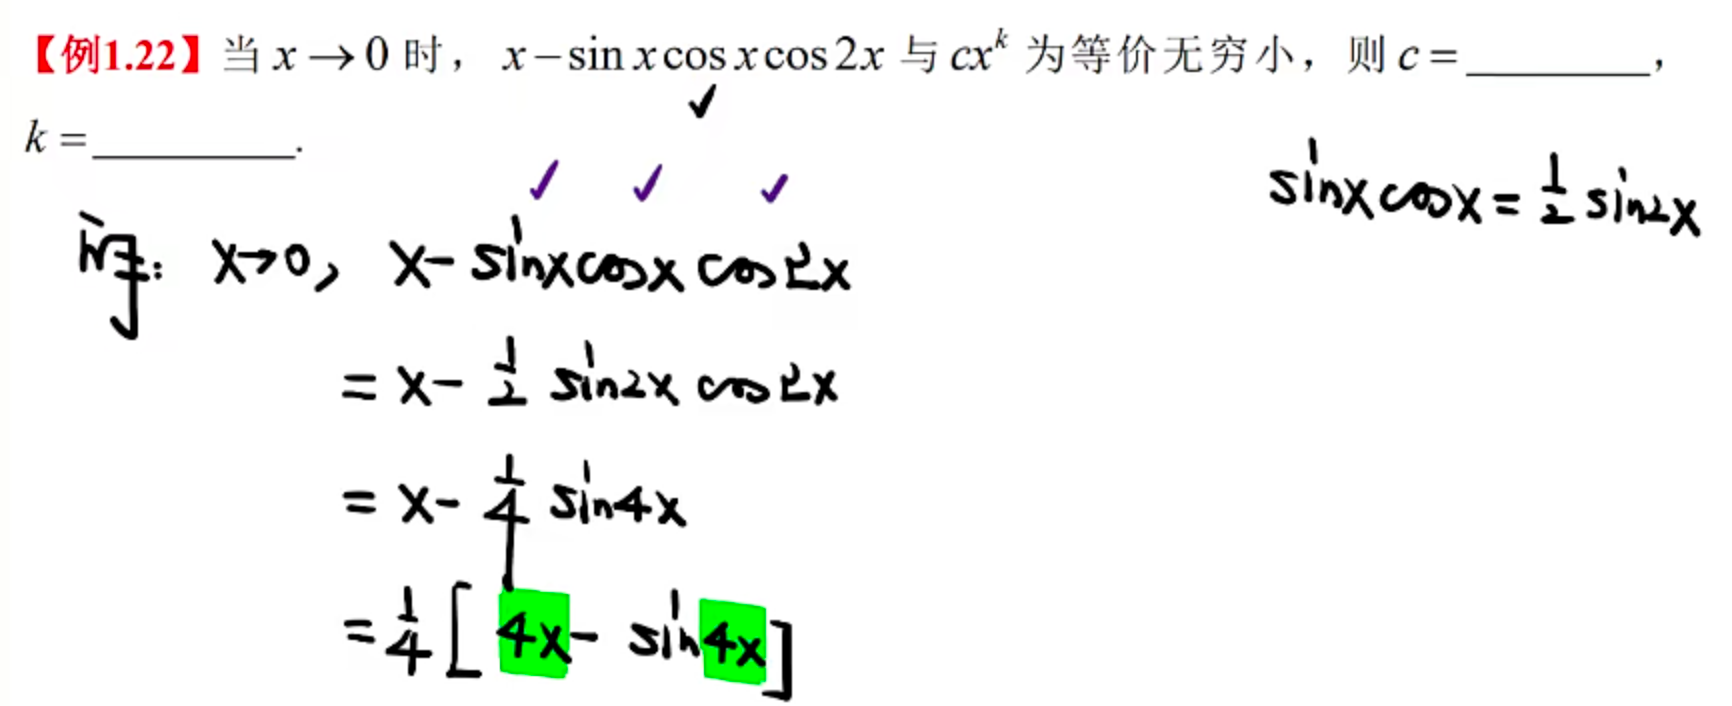 【例1.22】当 x→0 时，x−sin x cos x cos 2x 与 cx^k 为等价无穷小，则 c=________，
k=________.
sinxcosx=1/2 sin2x
解: x→0, x-sinxcosx cos2x
= x- 1/2 sin2x cos2x
= x- 1/4 sin4x
= 1/4 [4x- sin4x]